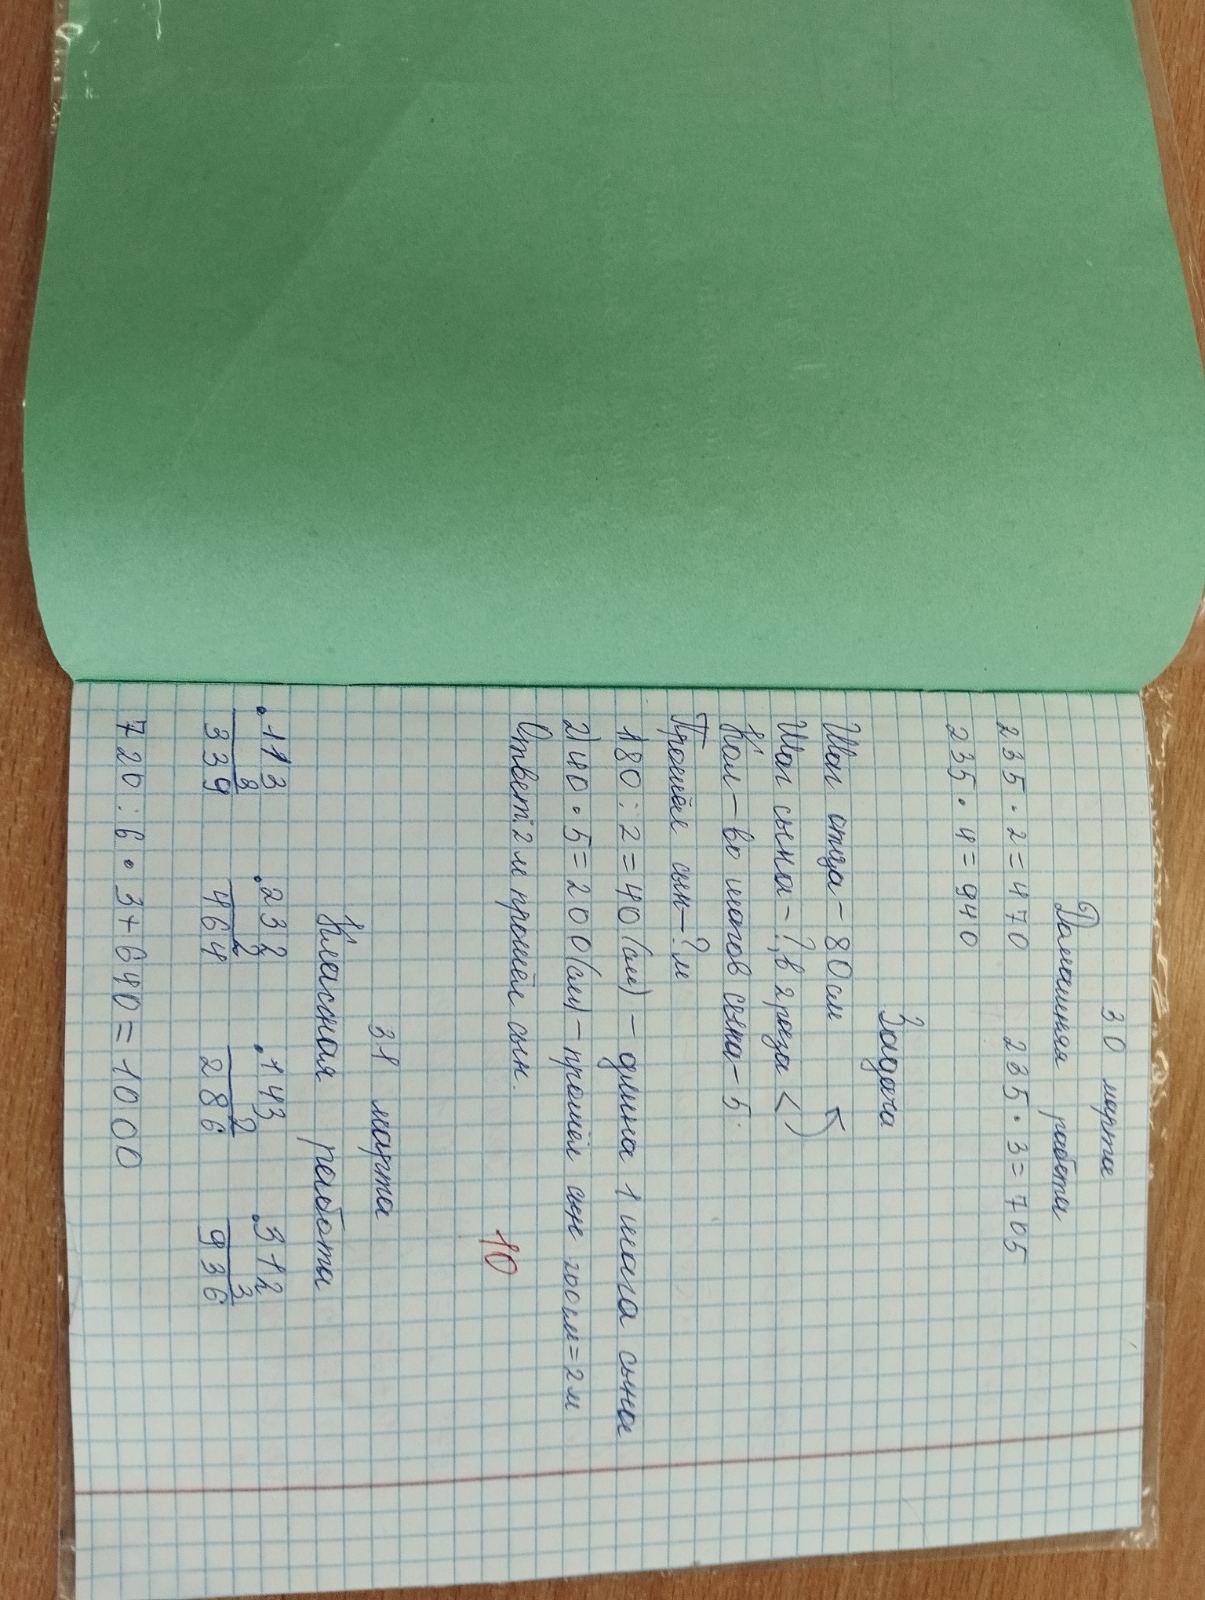 30 марта
Домашняя работа
235 · 2 = 470 235 · 3 = 705
235 · 4 = 940
Задача
Шаг отца – 80 см
Шаг сына – ?, в 2 раза <
Кол-во шагов сына – 5.
Прошёл сын – ? м
1) 80 : 2 = 40 (см) – длина 1 шага сына
2) 40 · 5 = 200 (см) – прошёл сын 200 см = 2 м
Ответ: 2 м прошёл сын.
10
31 марта
Класная работа
·113 ·232 ·143 ·312
3 2 2 3
339 464 286 936
720 : 6 · 3 + 640 = 1000